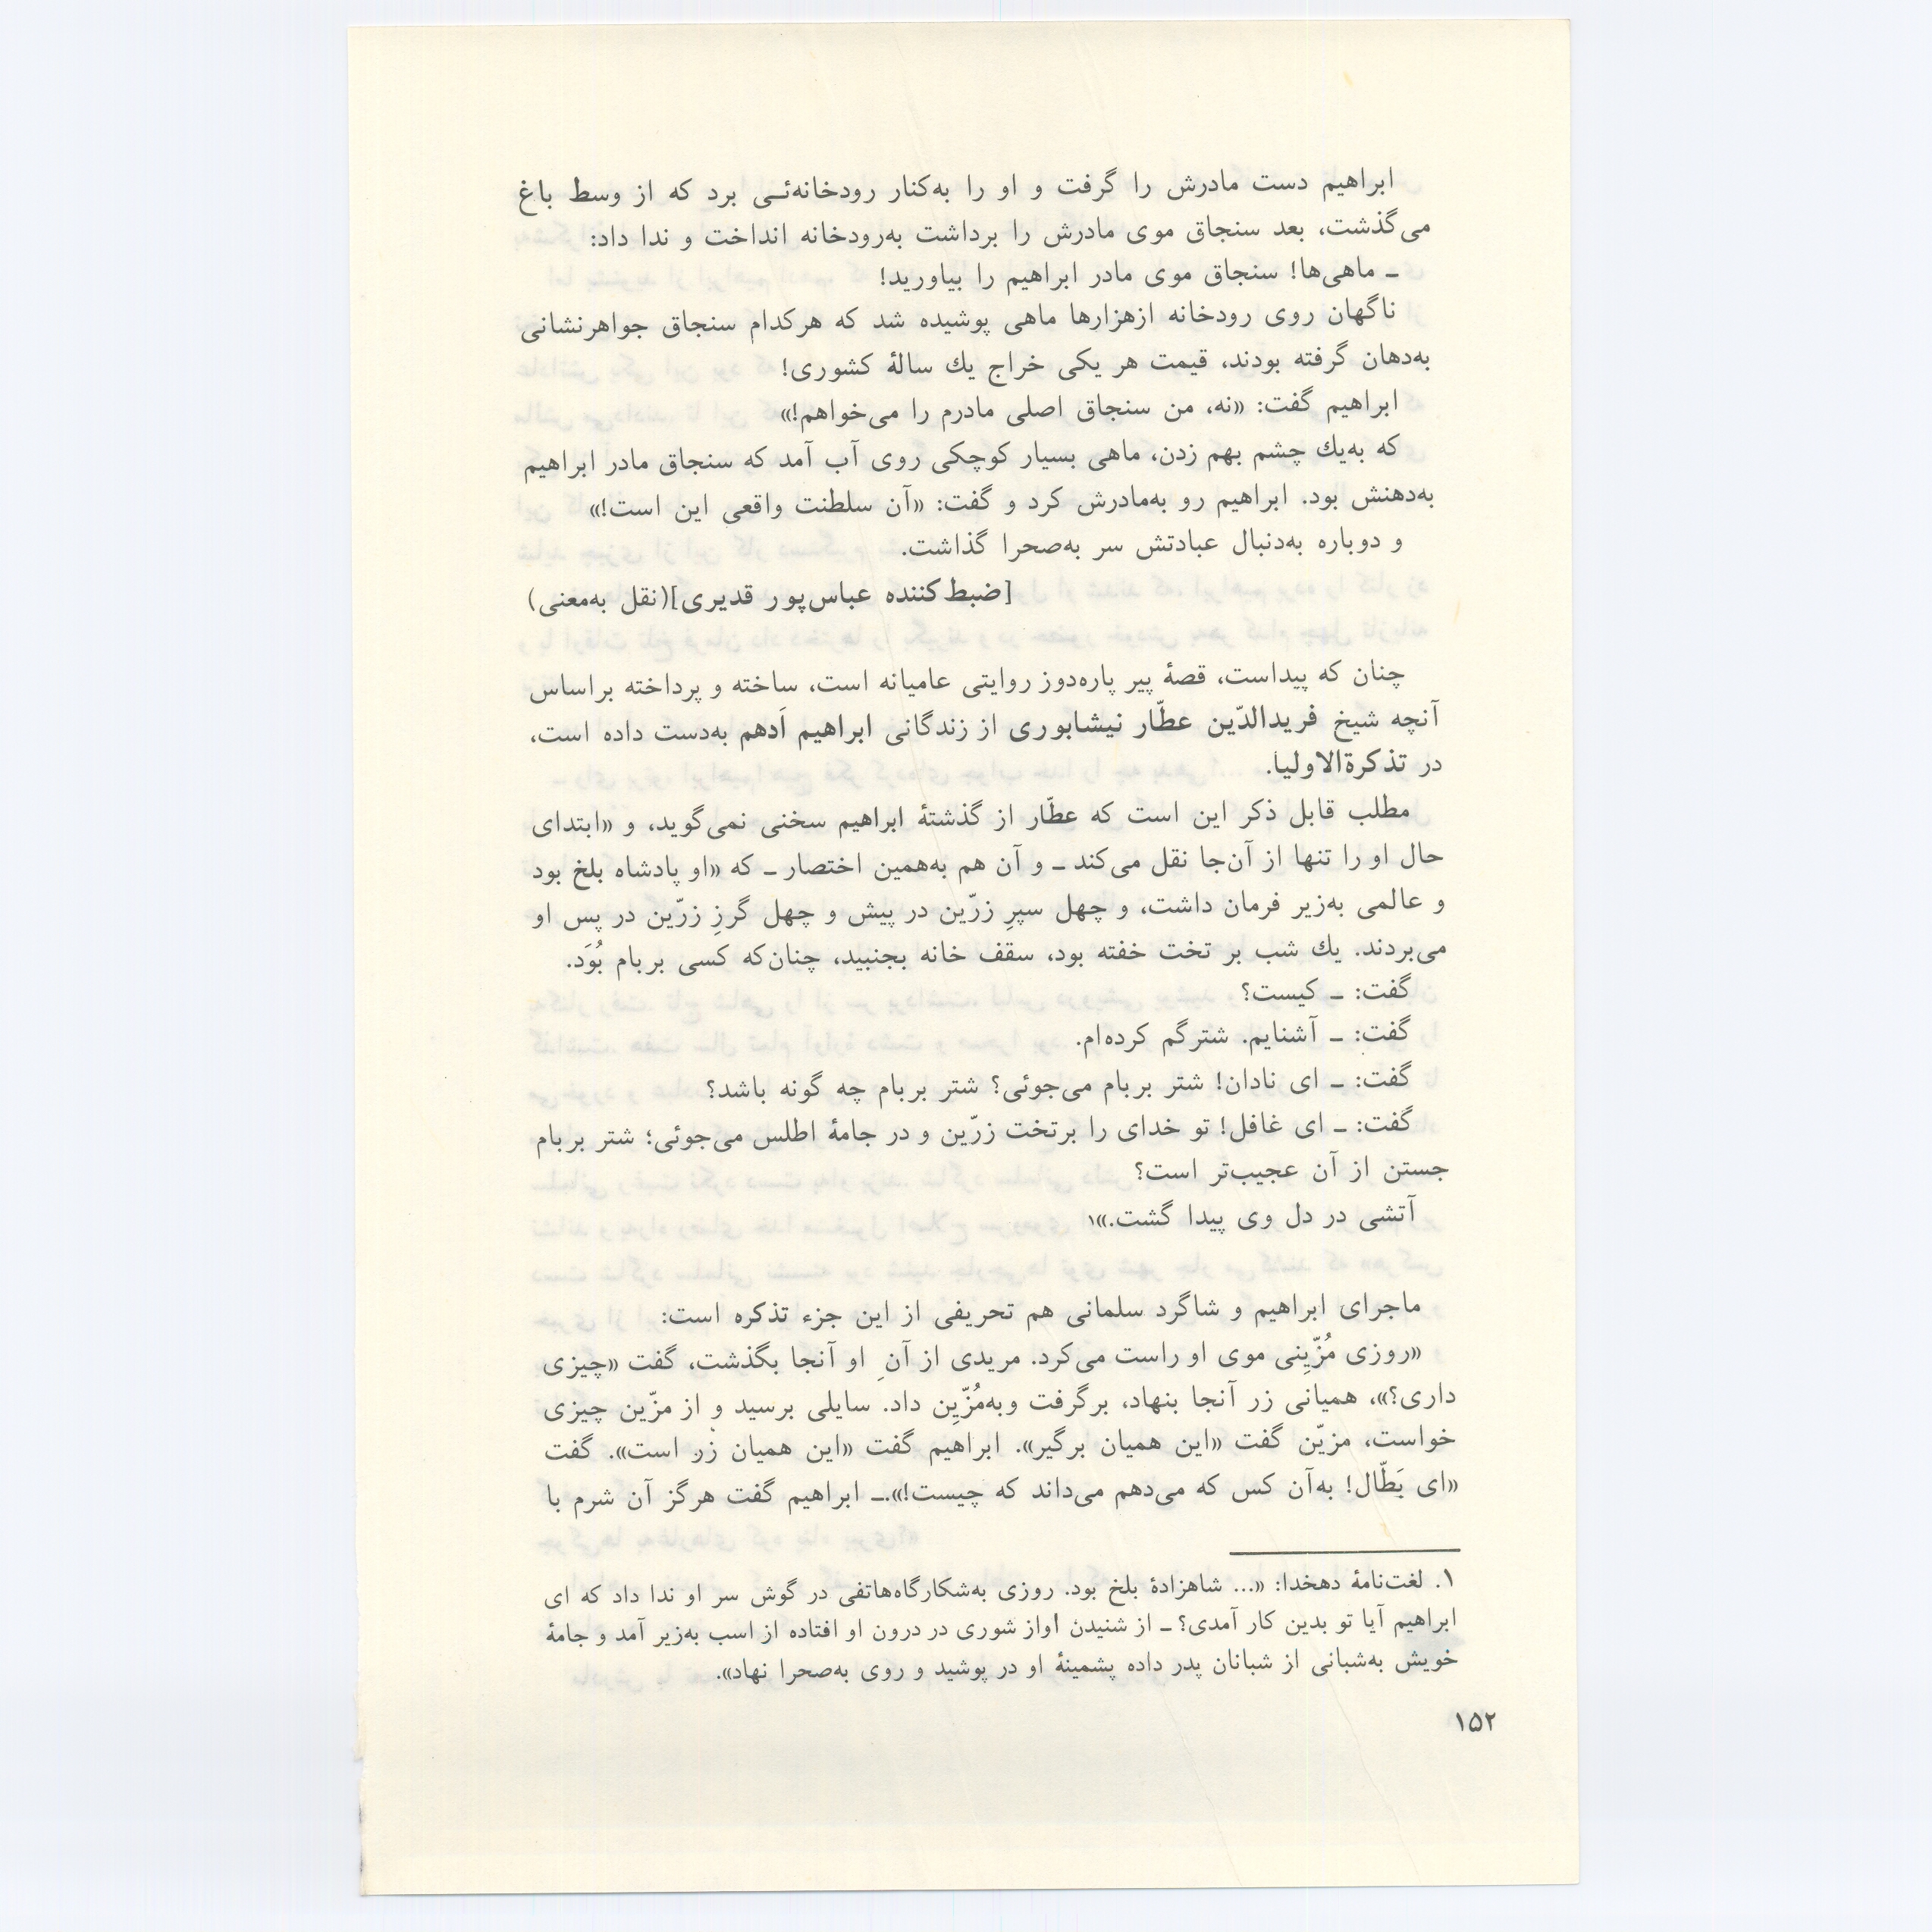 ابراهیم دست مادرش را گرفت و او را به‌کنار رودخانه‌ئی برد که از وسط باغ
می‌گذشت، بعد سنجاق موی مادرش را برداشت به‌رودخانه انداخت و ندا داد:
ـ ماهی‌ها! سنجاق موی مادر ابراهیم را بیاورید!
ناگهان روی رودخانه ازهزارها ماهی پوشیده شد که هرکدام سنجاق جواهرنشانی
به‌دهان گرفته بودند، قیمت هر یکی خراج یك سالهٔ کشوری!
ابراهیم گفت: «نه، من سنجاق اصلی مادرم را می‌خواهم!»
که به‌یك چشم بهم زدن، ماهی بسیار کوچکی روی آب آمد که سنجاق مادر ابراهیم
به‌دهنش بود. ابراهیم رو به‌مادرش کرد و گفت: «آن سلطنت واقعی این است!»
و دوباره به‌دنبال عبادتش سر به‌صحرا گذاشت.
[ضبط‌کننده عباس‌پور قدیری](نقل به‌معنی)
چنان که پیداست، قصهٔ پیر پاره‌دوز روایتی عامیانه است، ساخته و پرداخته براساس
آنچه شیخ فریدالدّین عطّار نیشابوری از زندگانی ابراهیم اَدهم به‌دست داده است،
در تذکرةالاولیا.
مطلب قابل ذکر این است که عطّار از گذشتهٔ ابراهیم سخنی نمی‌گوید، و «ابتدای
حال او را تنها از آن‌جا نقل می‌کند ـ و آن هم به‌همین اختصار ـ که «او پادشاه بلخ بود
و عالمی به‌زیر فرمان داشت، و چهل سپرِ زرّین در پیش و چهل گرزِ زرّین در پس او
می‌بردند. یك شب بر تخت خفته بود، سقف خانه بجنبید، چنان‌که کسی بربام بُوَد.
گفت: ـ کیست؟
گفت: ـ آشنایم. شترگم کرده‌ام.
گفت: ـ ای نادان! شتر بربام می‌جوئی؟ شتر بربام چه گونه باشد؟
گفت: ـ ای غافل! تو خدای را برتخت زرّین و در جامهٔ اطلس می‌جوئی؛ شتر بربام
جستن از آن عجیب‌تر است؟
آتشی در دل وی پیدا گشت.»۱
ماجرای ابراهیم و شاگرد سلمانی هم تحریفی از این جزء تذکره است:
«روزی مُزّیِنی موی او راست می‌کرد. مریدی از آنِ او آنجا بگذشت، گفت «چیزی
داری؟»، همیانی زر آنجا بنهاد، برگرفت وبه‌مُزّیِن داد. سایلی برسید و از مزّین چیزی
خواست، مزیّن گفت «این همیان برگیر». ابراهیم گفت «این همیان زر است». گفت
«ای بَطّال! به‌آن کس که می‌دهم می‌داند که چیست!».ـ ابراهیم گفت هرگز آن شرم با
۱. لغت‌نامهٔ دهخدا: «... شاهزادهٔ بلخ بود. روزی به‌شکارگاه‌هاتفی در گوش سر او ندا داد که ای
ابراهیم آیا تو بدین کار آمدی؟ ـ از شنیدن اواز شوری در درون او افتاده از اسب به‌زیر آمد و جامهٔ
خویش به‌شبانی از شبانان پدر داده پشمینهٔ او در پوشید و روی به‌صحرا نهاد».
۱۵۲